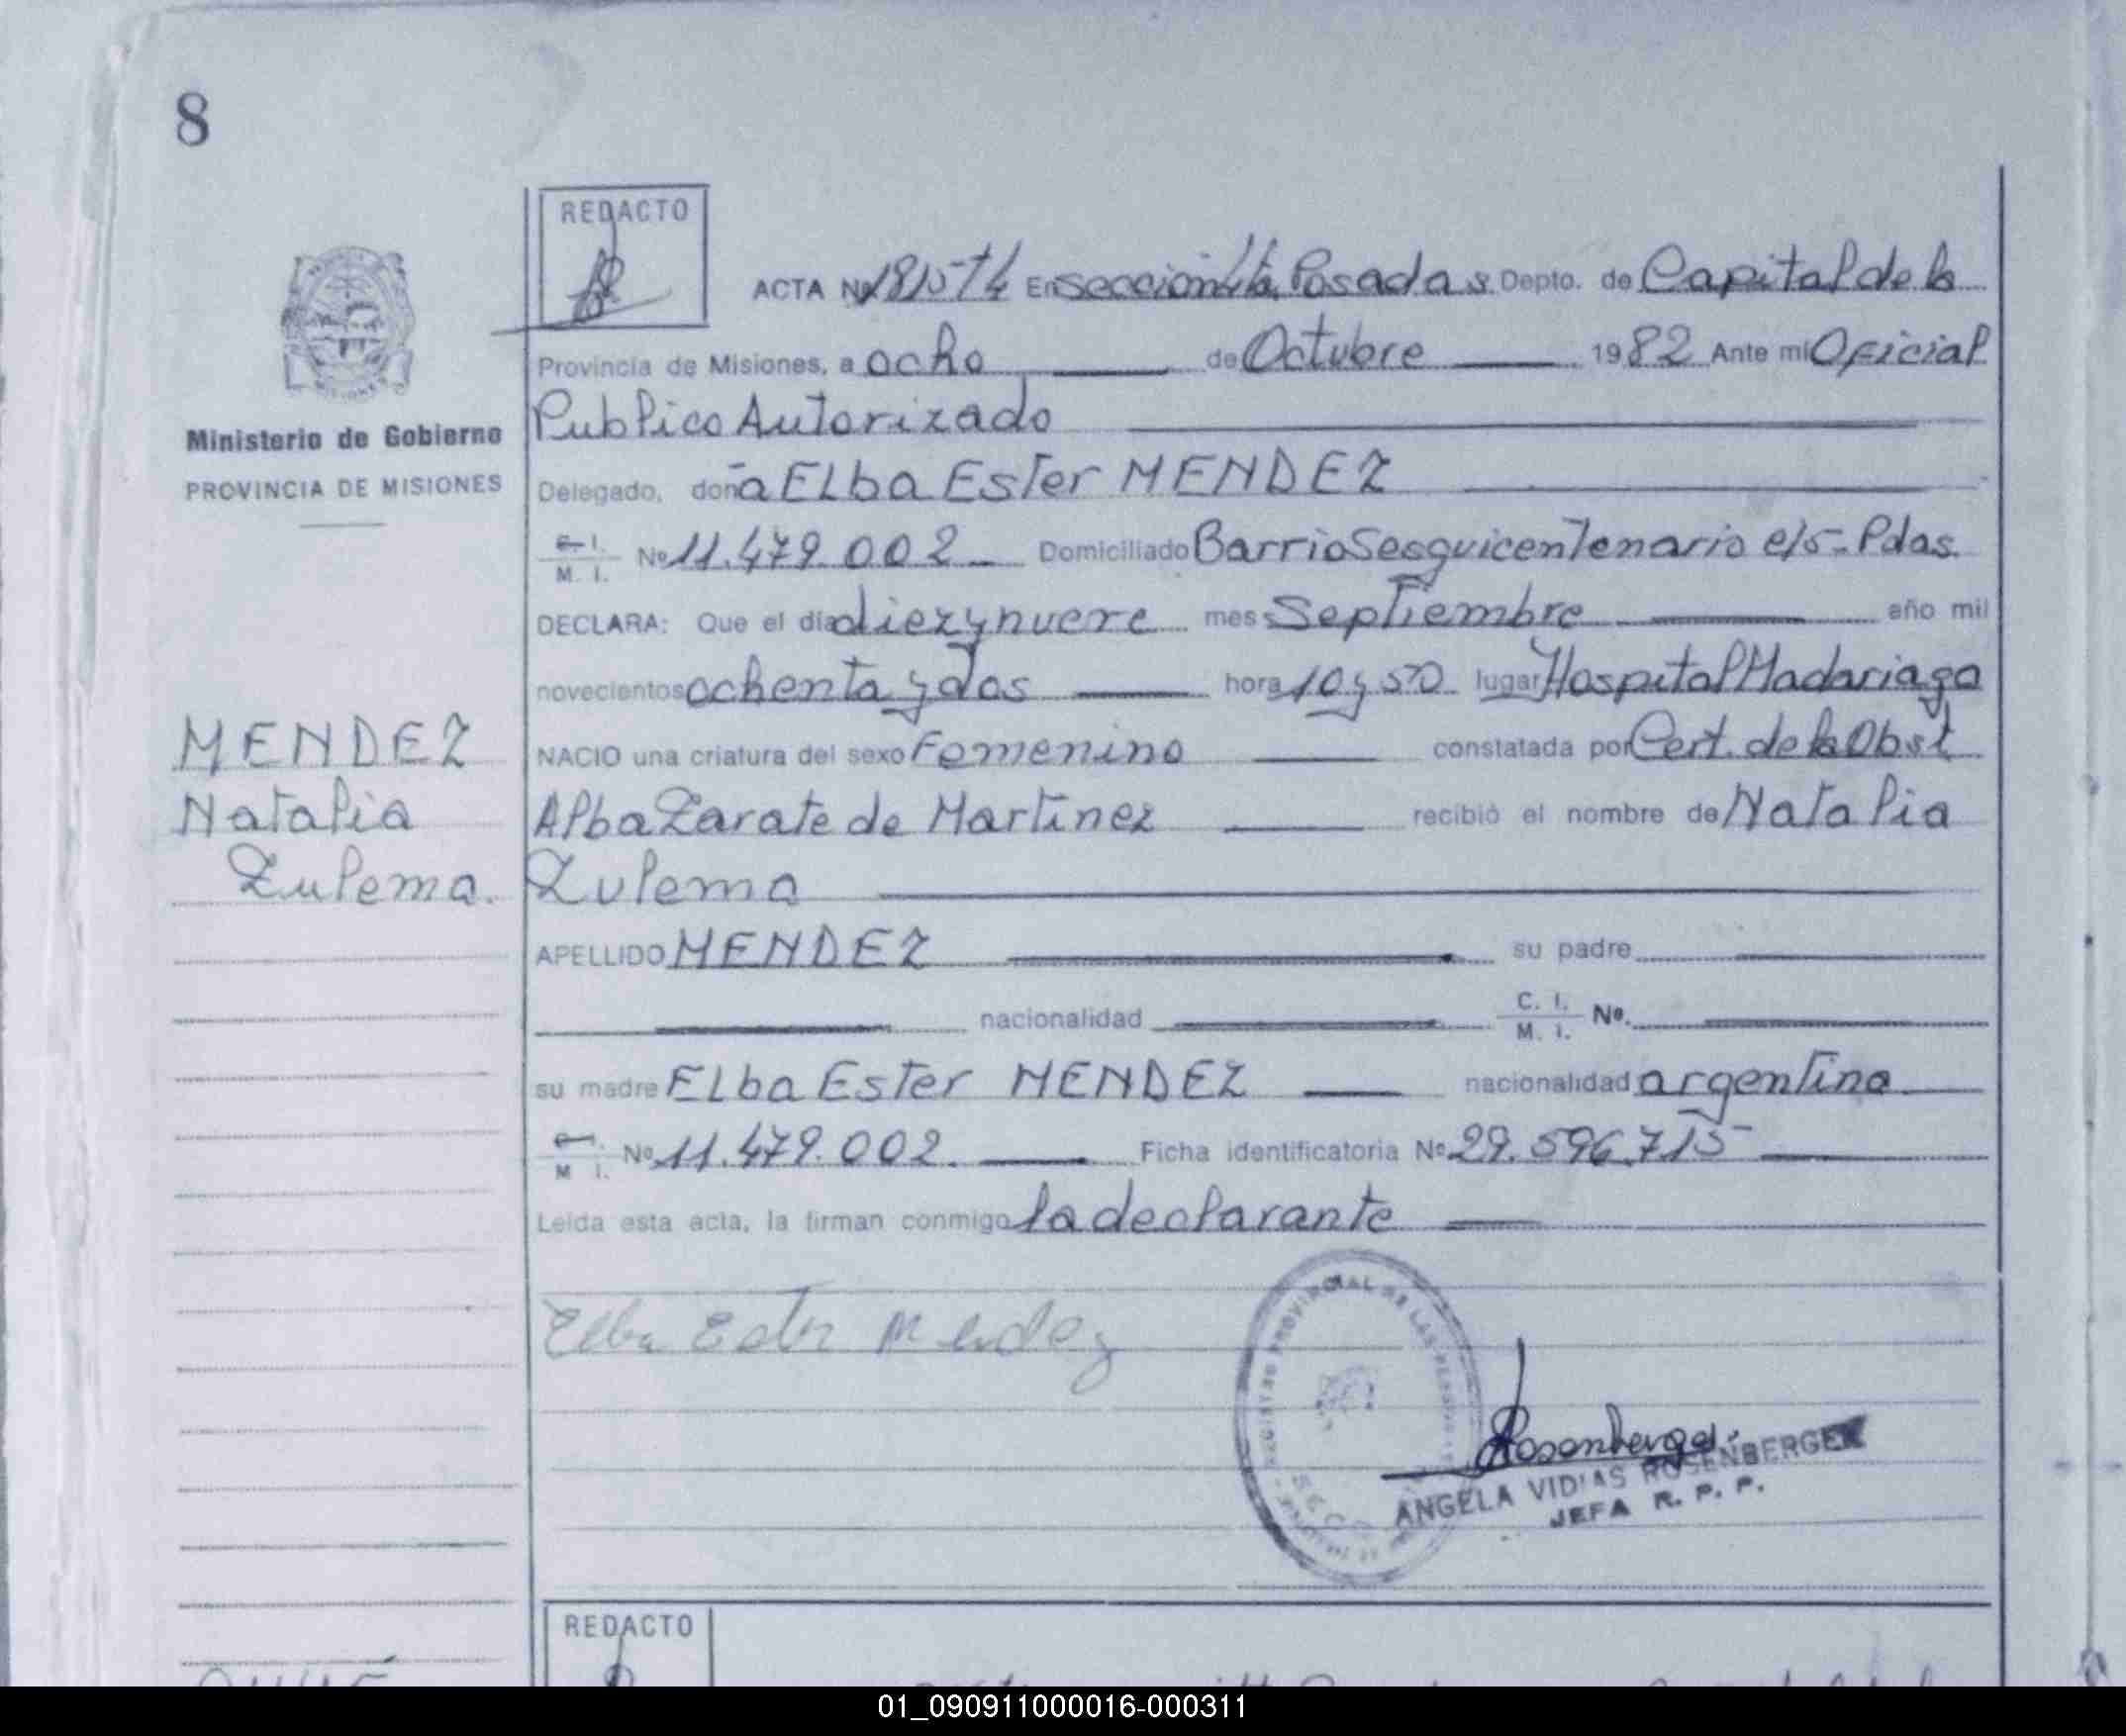 8
REDACTO
ACTA Nº En sección 4ta. Posadas Depto. de Capital de la
Provincia de Misiones, a ocho de Octubre 1982 Ante mi Oficial
Publico Autorizado
Ministerio de Gobierno
PROVINCIA DE MISIONES
Delegado, doña Elba Ester MENDEZ
C. I. M. I. Nº 11.479.002 Domiciliado Barrio Sesquicentenario e/5- Pdas.
DECLARA: Que el día diez y nueve mes Septiembre año mil
novecientos ochenta y dos hora 10 y 50 lugar Hospital Madariaga
NACIO una criatura del sexo Femenino constatada por Cert. de la Obst
Alba Zarate de Martinez recibió el nombre de Natalia
Zulema
MENDEZ
Natalia
Zulema.
APELLIDO MENDEZ su padre
nacionalidad C. I. M. I. Nº.
su madre Elba Ester MENDEZ nacionalidad argentina
M. I. Nº 11.479.002. Ficha identificatoria Nº 29.596.715
Leida esta acta, la firman conmigo la declarante
Elba Ester Mendez
REGISTRO PROVINCIAL DE LAS PERSONAS
Rosenberger
ANGELA VIDIAS ROSENBERGER
JEFA R. P. P.
REDACTO
01_090911000016-000311